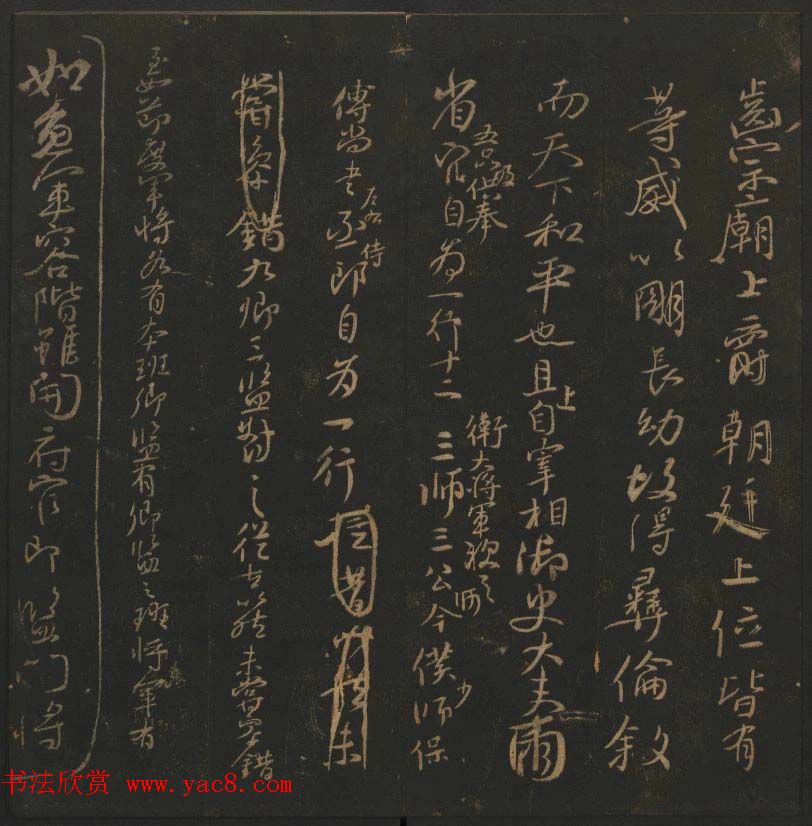 齒宗廟上爵朝廷上位皆有
等威以明長幼故得彝倫敘
而天下和平也且上自宰相御史大夫兩
省五品已上供奉官自為一行十二衛大將軍次之三師三公令僕少師保
傅尚書左右丞侍郎自為一行
嘗參錯九卿三監對之從古以然未嘗參錯
至如節度軍將各有本班卿監有卿監之班將軍有
如魚軍容階雖開府官即監門將
书法欣赏 www.yac8.com